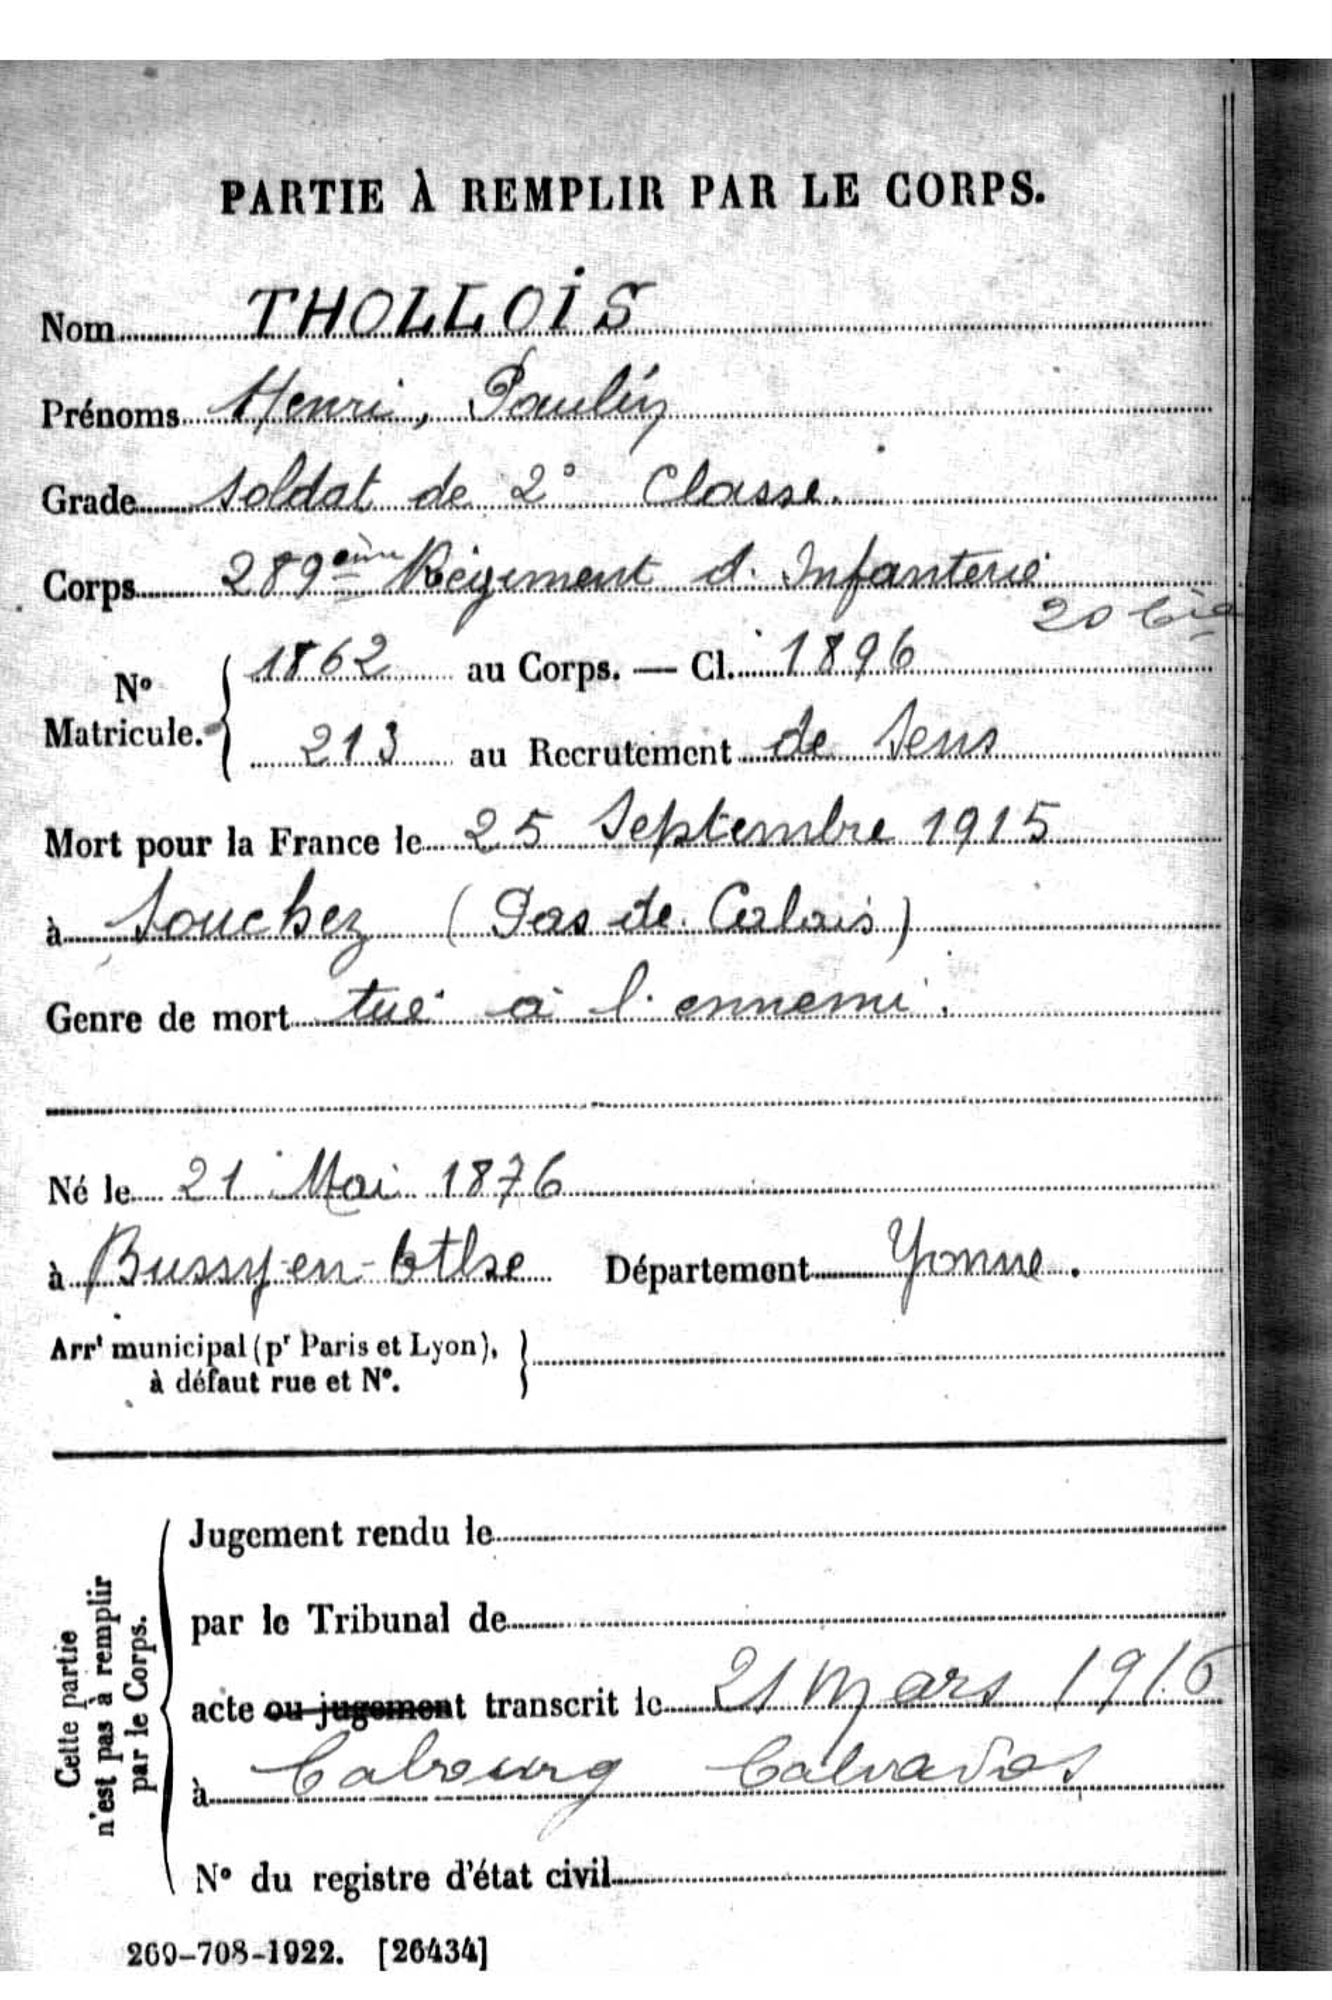 PARTIE À REMPLIR PAR LE CORPS.
Nom THOLLOIS
Prénoms Henri, Paulin
Grade Soldat de 2° Classe.
Corps 289ème Régiment d'Infanterie
20 bis
1862 au Corps. — Cl. 1896
No
Matricule.
213 au Recrutement de Sens
Mort pour la France le 25 Septembre 1915
à Souchez (Pas de Calais)
Genre de mort tué à l'ennemi.
Né le 21 Mai 1876
à Bussy-en-Othe Département Yonne.
Arrt municipal (pr Paris et Lyon),
à défaut rue et No.
Cette partie
n'est pas à remplir
par le Corps.
Jugement rendu le
par le Tribunal de
acte ou jugement transcrit le 21 mars 1916
à Cabourg Calvados
No du registre d'état civil
269-708-1922. [26434]